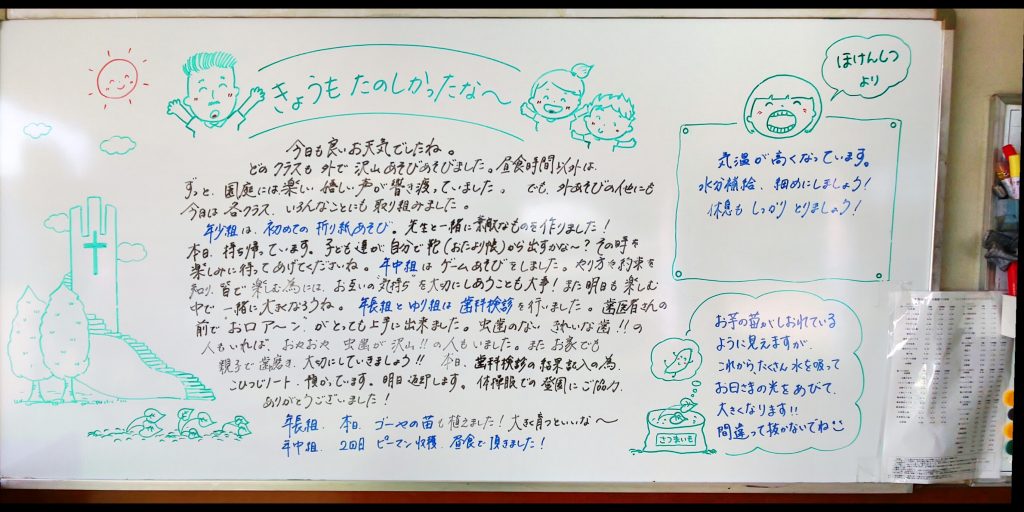 きょうも たのしかったな〜
今日も良いお天気でしたね。
どのクラスも 外で 沢山 あそびあそびました。昼食時間以外は、
ずっと、園庭には楽しい 嬉しい 声が 響き渡っていました。 でも、外あそびの他にも
今日は 各クラス、いろんなことにも 取り組みました。
年少組は、初めての 折り紙あそび。先生と一緒に 素敵なものを作りました!
本日、持ち帰っています。子ども達が、自分で 鞄(おたより帳)から出すかな〜? その時を
楽しみに待ってあげてくださいね。年中組は ゲームあそびをしました。やり方や約束を
知り、皆で 楽しむ為には、お互いの"気持ち"を大切にしあうことも大事! また明日も 楽しむ
中で 一緒に 大きくなろうね。年長組と ゆり組は 歯科検診を行いました。歯医者さんの
前で お口アーン、が とっても上手に出来ました。虫歯のない きれいな歯!!の
人もいれば、おやおや 虫歯が 沢山!!の人もいました。また お家でも
親子で 歯磨き、大切にしていきましょう!! 本日、歯科検診の結果記入の為、
こひつじノート、預かっています。明日 返却します。体操服での 登園にご協力、
ありがとうございました!
年長組、本日、ゴーヤの苗も植えました! 大きく育つといいな〜
年中組、2回目 ピーマン収穫、昼食で 頂きました!
ほけんしつ
より
気温が高くなっています。
水分補給、細めにしましょう!
休息も しっかり とりましょう!
お芋の苗がしおれている
ように見えますが、
これからたくさん 水を吸って
お日さまの光をあびて、
大きくなります!!
間違って抜かないでね
さつまいも